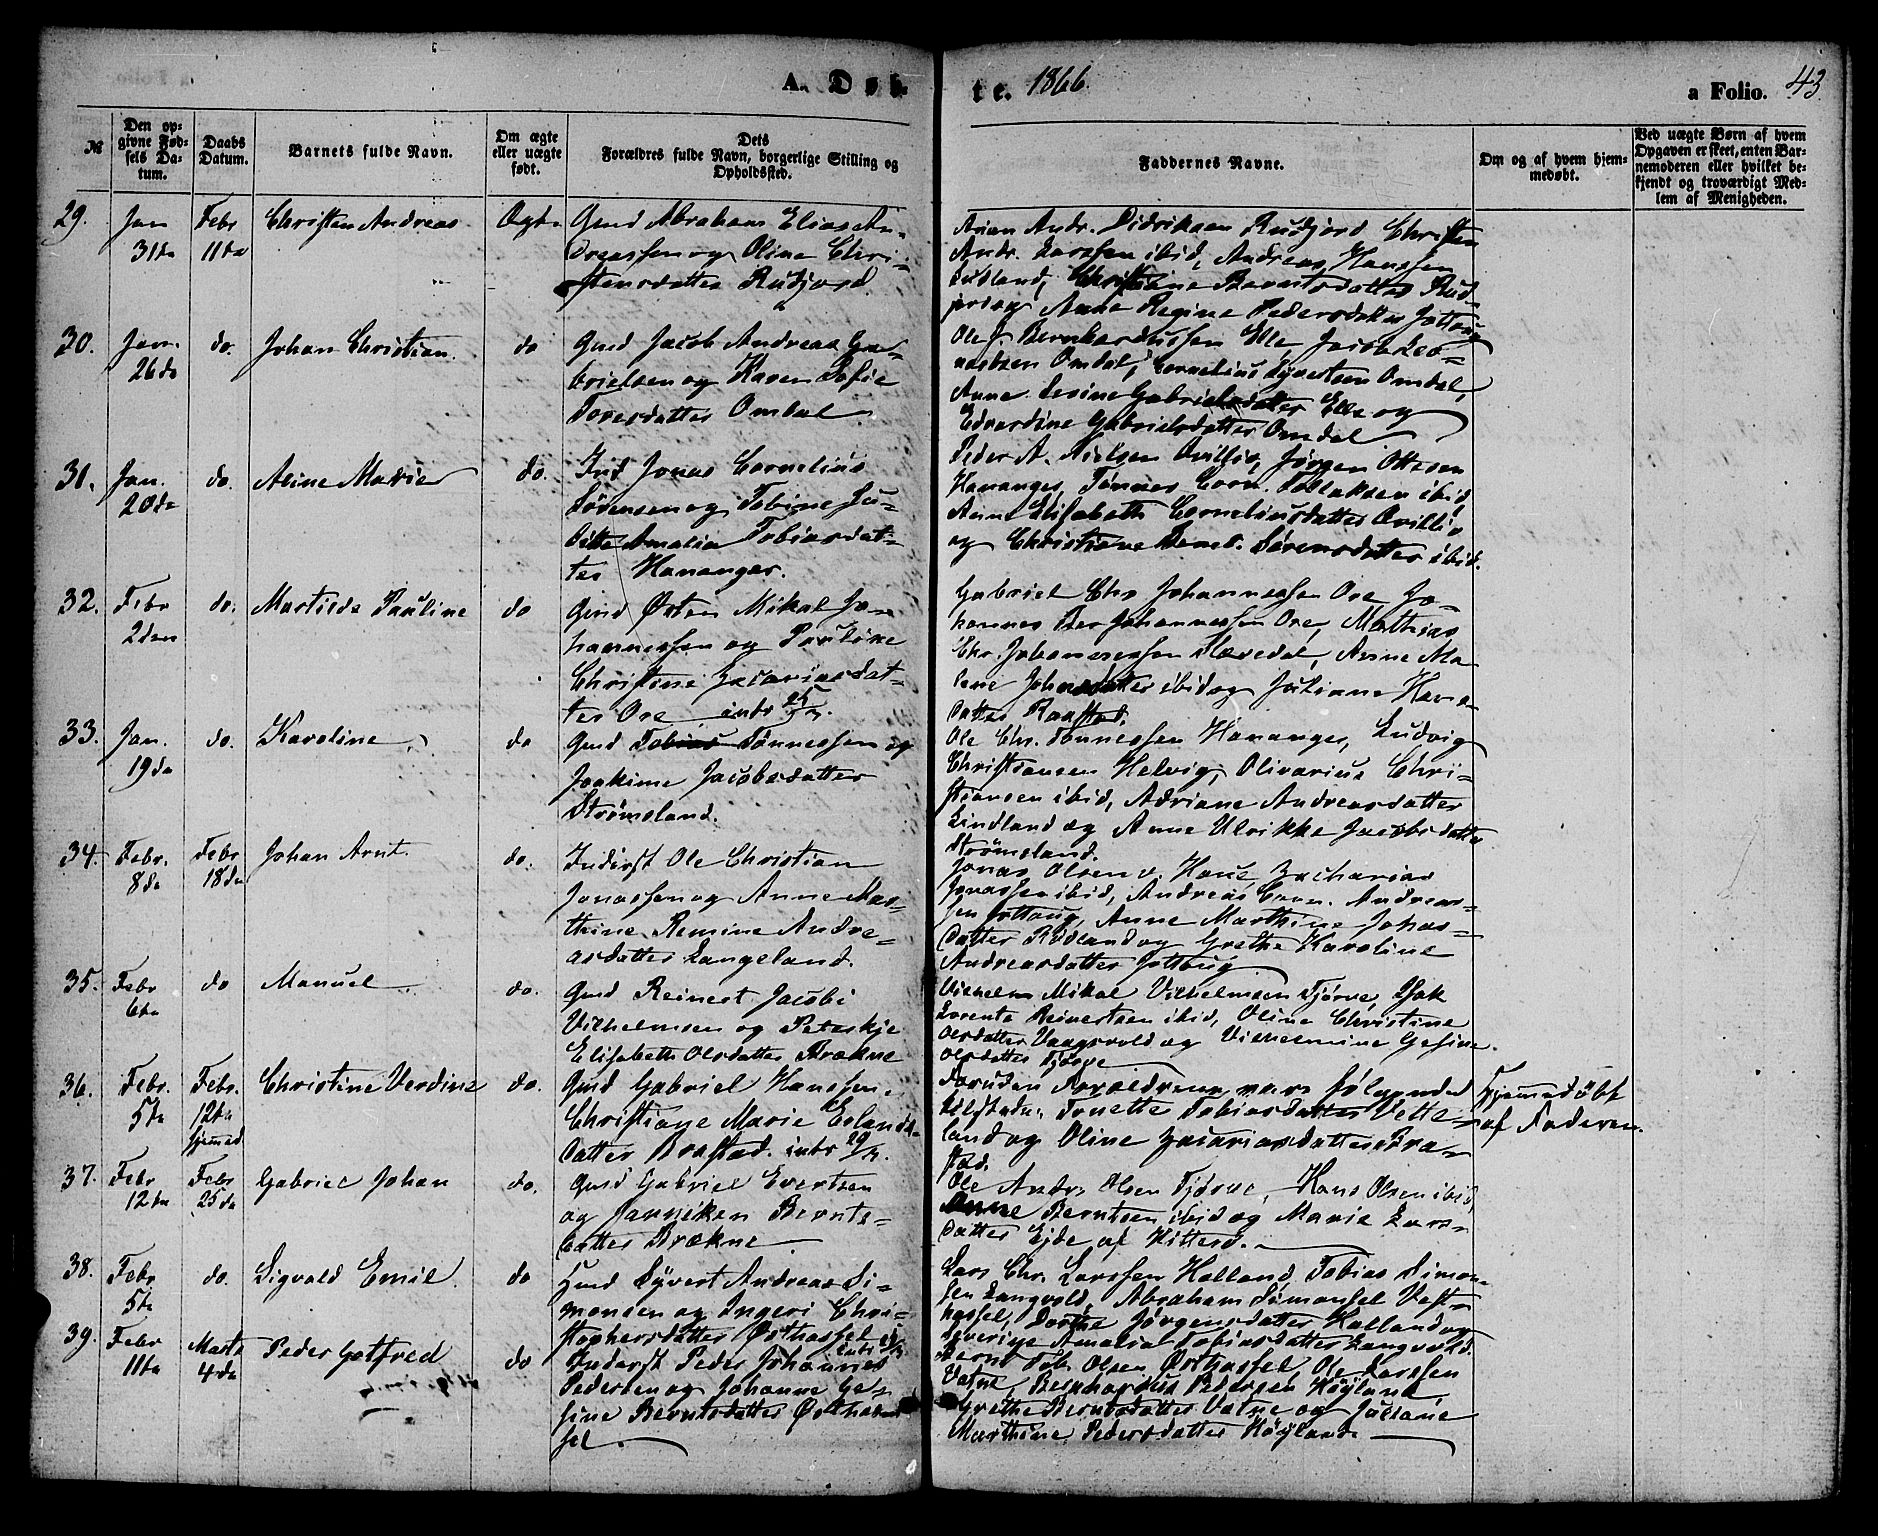 A. Døb-
te. 1866.
a Folio. 43
№
Den op-
givne Fød-
sels Da-
tum.
Daabs
Datum.
Barnets fulde Navn.
Om ægte
eller uægte
født.
Dets
Forældres fulde Navn, borgerlige Stilling og
Opholdssted.
Faddernes Navne.
Om og af hvem hjem-
medøbt.
Ved uægte Børn af hvem
Opgaven er skeet, enten Bar-
nemoderen eller hvilket be-
kjendt og troværdigt Med-
lem af Menigheden.
29.
Jan
31te
Febr
11te
Christen Andreas
Ægte
Gmd Abraham Elias An-
dreassen og Oline Chri-
stensdatter Rudjord
Arian Andr. Didriksen Rudjord Christen
Andr. Larssen ibid, Andreas Hanssen
Lidland, Christine Berntsdatter Rud-
jord og Anne Regine Pedersdatter Jottoug
30.
Jan.
26de
do.
Johan Christian.
do
Gmd Jacob Andreas Ga-
brielsen og Karen Sofie
Toresdatter Omdal
Ole J. Bernhardussen Elle Jacob Leo-
nardsen Omdal, Cornelius Syvertsen Omdal,
Anne Sesine Gabrielsdatter Elle og
Edvardine Gabrielsdatter Omdal
31.
Jan.
20de
do.
Aline Marie
do.
Ind Jonas Cornelius
Sørensen og Tobine Ju-
ditte Amalia Tobiasdat-
ter Hananger.
Peder A. Nielsen Qvillio, Jørgen Ottesen
Hananger, Tønnes Corn. Tollaksen ibid
Anne Elisabeth Corneliusdatter Qvillio
og Christiane Benet. Sørensdatter ibid.
32.
Febr
2den
do.
Martilde Pauline
do
Gmd Østen Mikal Jo-
hannessen og Pauline
Christine Zacariasdat-
ter Ore intr 25/3.
Gabriel Chr Johannessen Ore Jo-
hannes Ber Johannessen Ore, Mathias
Chr. Johannessen Slevedal, Anne Ma
lene Johnsdatter ibid og Juliane Hans-
datter Raastad.
33.
Jan.
19de
do.
Karoline
do
Gmd Tobias Tønnessen og
Joakime Jacobsdatter
Strømsland.
Ole Chr. Tønnessen Hananger, Ludvig
Christiansen Helvig, Olivarius Chri-
stiansen ibid, Adriane Andreasdatter
Lindland og Anne Ulrikke Jacobsdatter
Strømsland.
34.
Febr.
8de
Febr
18de
Johan Arnt.
do.
Inderst Ole Christian
Jonassen og Anne Mar-
thine Remine Andre-
asdatter Langeland.
Jonas Olsen v. Haue Zacharias
Jonassen ibid, Andreas Corn. Andreas-
sen Jottoug, Anne Marthine Johas-
datter Rødland og Grethe Karoline
Andreasdatter Jottoug.
35.
Febr
6te
do
Manuel
do.
Gmd Reinert Jacobi
Vilhelmsen og Peterskje
Elisabeth Olsdatter Brækne
Vilhelm Mikal Vilhelmsen Tjørve, Isak
Lorents Reinertsen ibid, Oline Christine
Olsdatter Vaagsvold og Vilhelmine Gesine
Olsdatter Tjørve
36.
Febr.
5te
Febr.
12te
hjemmed
Christine Verdine
do.
Gmd Gabriel Hanssen
Christiane Marie Erlands-
datter Brastad. intr 29/3.
Foruden Forældrene vare følgende
tilstede: Tonette Tobiasdatter Vette-
land og Oline Zacariasdatter Bra-
stad.
Hjemmedøbt
af Faderen.
37.
Febr
12te
Febr
25de
Gabriel Johan
do.
Gmd Gabriel Evertsen
og Janniken Bernts-
datter Brækne
Ole Andr Olsen Tjørve, Hans Olsen ibid,
Anne Berntsen ibid og Marie Lars-
datter Eide af Hitterø.
38.
Febr
5te
do.
Sigvald Emil.
do
Gmd Syvert Andreas Si-
monsen og Ingeri Chri-
stophersdatter Østhassel
Lars Chr. Larssen Holland, Tobias Simon-
sen Langvold, Abraham Simonsen Vest-
hassel, Dorthe Jørgensdatter Holland og
Severine Amalia Tobiasdatter Langvold
39.
Febr
11te
Marts
4de
Peder Gotfred
do
Inderst Peder Johannes
Pedersen og Johanne Ge-
sine Berntsdatter Østhas-
sel.
Bernt Tob. Olsen Østhassel, Ole Larssen
Vatne, Bernhardus Pedersen Høyland
Grethe Berntsdatter Vatne og Juliane
Marthine Pedersdatter Høyland